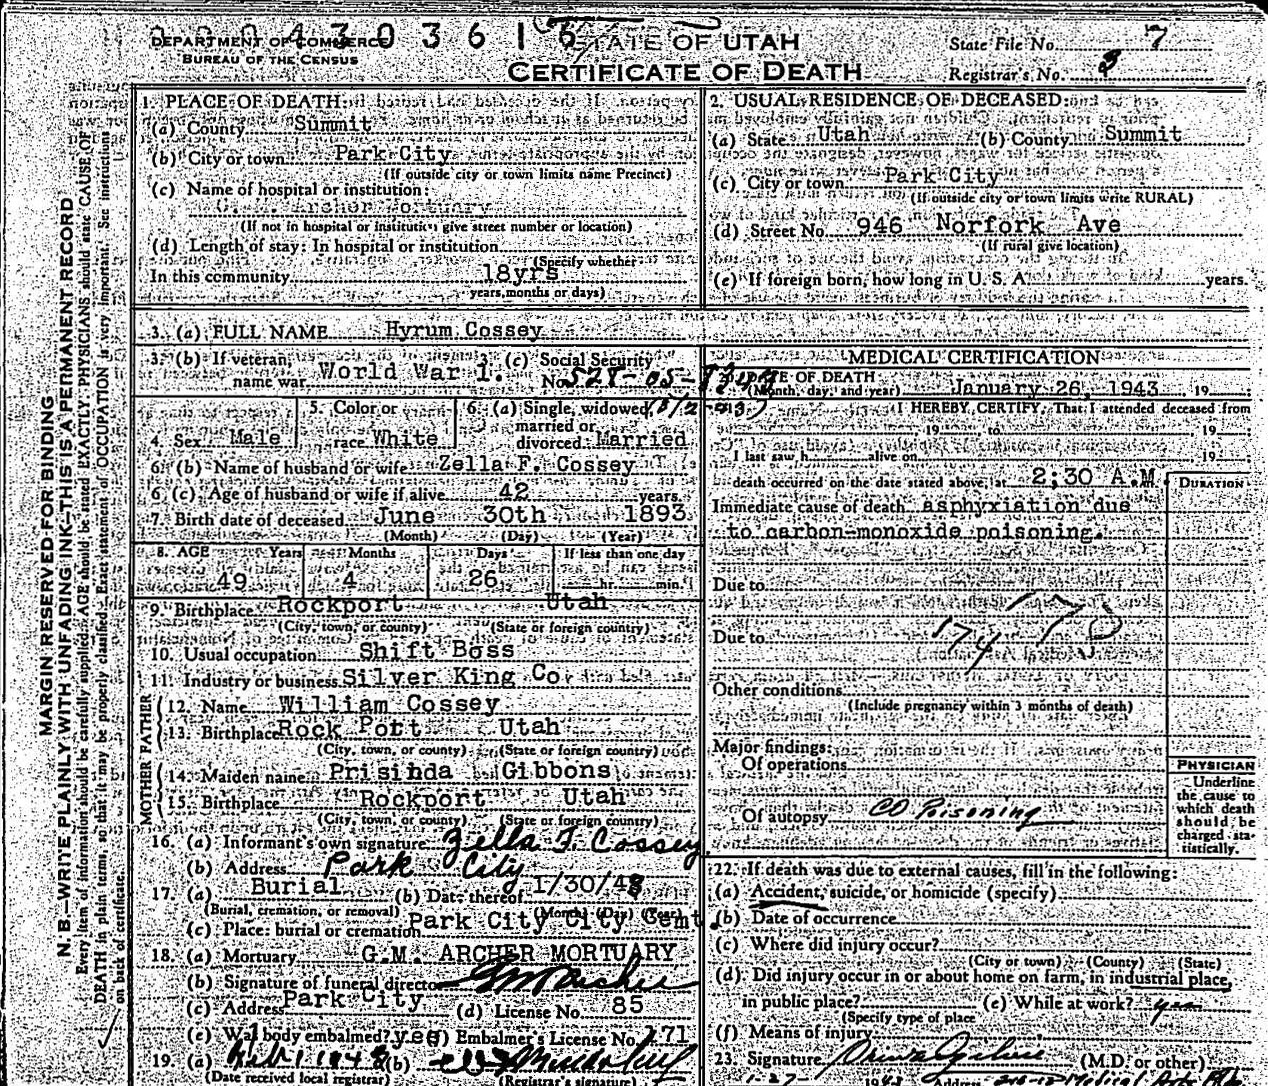 0 0 0 4 3 0 3 6 1
DEPARTMENT OF COMMERCE
BUREAU OF THE CENSUS
STATE OF UTAH
CERTIFICATE OF DEATH
State File No. 7
Registrar's No. 3
MARGIN RESERVED FOR BINDING
N. B.—WRITE PLAINLY, WITH UNFADING INK—THIS IS A PERMANENT RECORD
Every item of information should be carefully supplied. AGE should be stated EXACTLY. PHYSICIANS should state CAUSE OF
DEATH in plain terms, so that it may be properly classified. Exact statement of OCCUPATION is very important. See instructions
on back of certificate.
1. PLACE OF DEATH:
(a) County Summit
(b) City or town Park City
(If outside city or town limits name Precinct)
(c) Name of hospital or institution:
Archer Mortuary
(If not in hospital or institution give street number or location)
(d) Length of stay: In hospital or institution
(Specify whether
In this community 18yrs
years, months or days)
2. USUAL RESIDENCE OF DECEASED:
(a) State Utah (b) County Summit
(c) City or town Park City
(If outside city or town limits write RURAL)
(d) Street No. 946 Norfork Ave
(If rural give location)
(e) If foreign born, how long in U. S. A. years.
3. (a) FULL NAME Hyrum Cossey
3. (b) If veteran, name war World War 1.
3. (c) Social Security No. 528-05-
4. Sex Male
5. Color or race White
6. (a) Single, widowed, married or divorced. Married
6. (b) Name of husband or wife Zella F. Cossey
6 (c). Age of husband or wife if alive 42 years.
7. Birth date of deceased June 30th 1893
(Month) (Day) (Year)
8. AGE Years Months Days If less than one day
49 4 26 hr. min.
9. Birthplace Rockport Utah
(City, town, or county) (State or foreign country)
10. Usual occupation Shift Boss
11. Industry or business Silver King Co
FATHER
12. Name William Cossey
13. Birthplace Rock Port Utah
(City, town, or county) (State or foreign country)
MOTHER
14. Maiden name Prisinda Gibbons
15. Birthplace Rockport Utah
(City, town, or county) (State or foreign country)
16. (a) Informant's own signature Zella F. Cossey
(b) Address Park City
17. (a) Burial (b) Date thereof 1/30/43
(Burial, cremation, or removal) (Month) (Day) (Year)
(c) Place: burial or cremation Park City City Cemt.
18. (a) Mortuary G.M. ARCHER MORTUARY
(b) Signature of funeral director GM Archer
(c) Address Park City (d) License No. 85
(e) Was body embalmed? yes (f) Embalmer's License No. 171
19. (a) Feb 1 1943 (b)
(Date received local registrar) (Registrar's signature)
MEDICAL CERTIFICATION
DATE OF DEATH
(Month, day, and year) January 26, 1943 19
I HEREBY CERTIFY, That I attended deceased from
19 to 19
I last saw h alive on 19
death occurred on the date stated above, at 2;30 A.M.
DURATION
Immediate cause of death asphyxiation due
to carbon-monoxide poisoning.
Due to
Due to
174
Other conditions
(Include pregnancy within 3 months of death)
Major findings:
Of operations
Of autopsy CO Poisoning
PHYSICIAN
Underline
the cause to
which death
should be
charged sta-
tistically.
22. If death was due to external causes, fill in the following:
(a) Accident, suicide, or homicide (specify)
(b) Date of occurrence
(c) Where did injury occur?
(City or town) (County) (State)
(d) Did injury occur in or about home on farm, in industrial place,
in public place? (e) While at work? yes
(Specify type of place
(f) Means of injury
23. Signature (M.D. or other)
1-27- 1943 Address